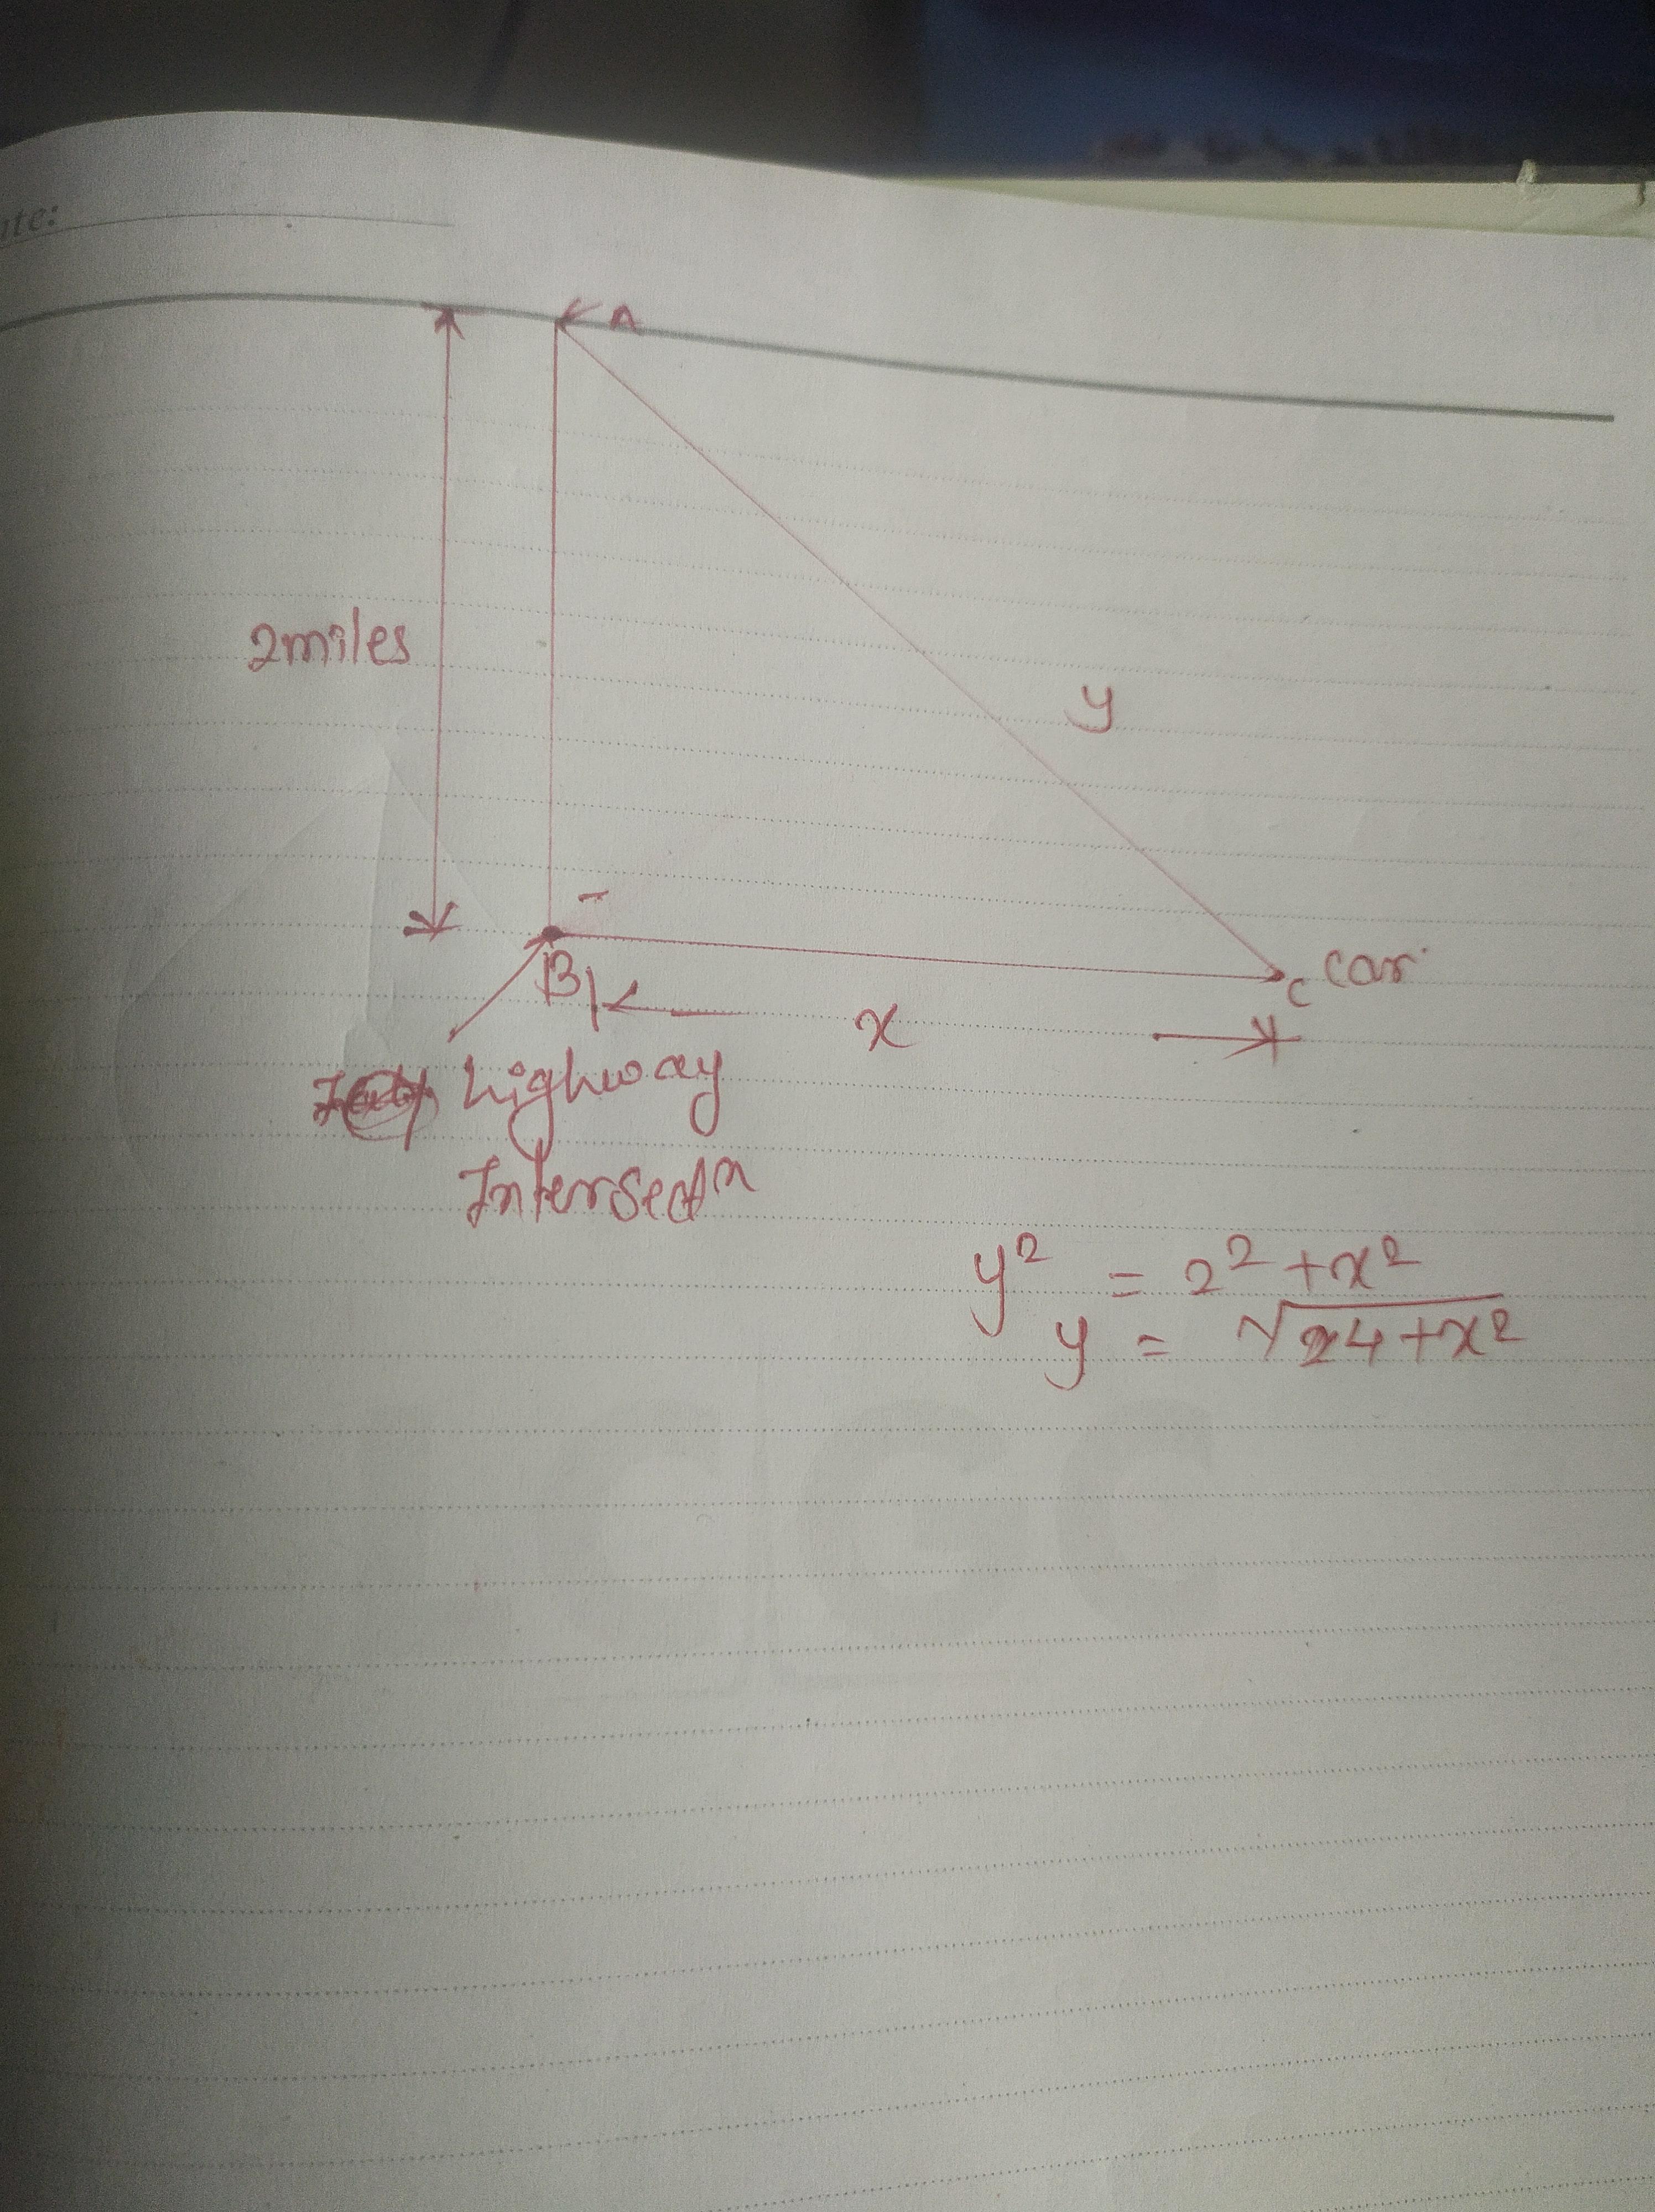 ate:
A
2miles
y
B
C car
x
highway
Intersectn
y² = 2² + x²
y = √4+x²